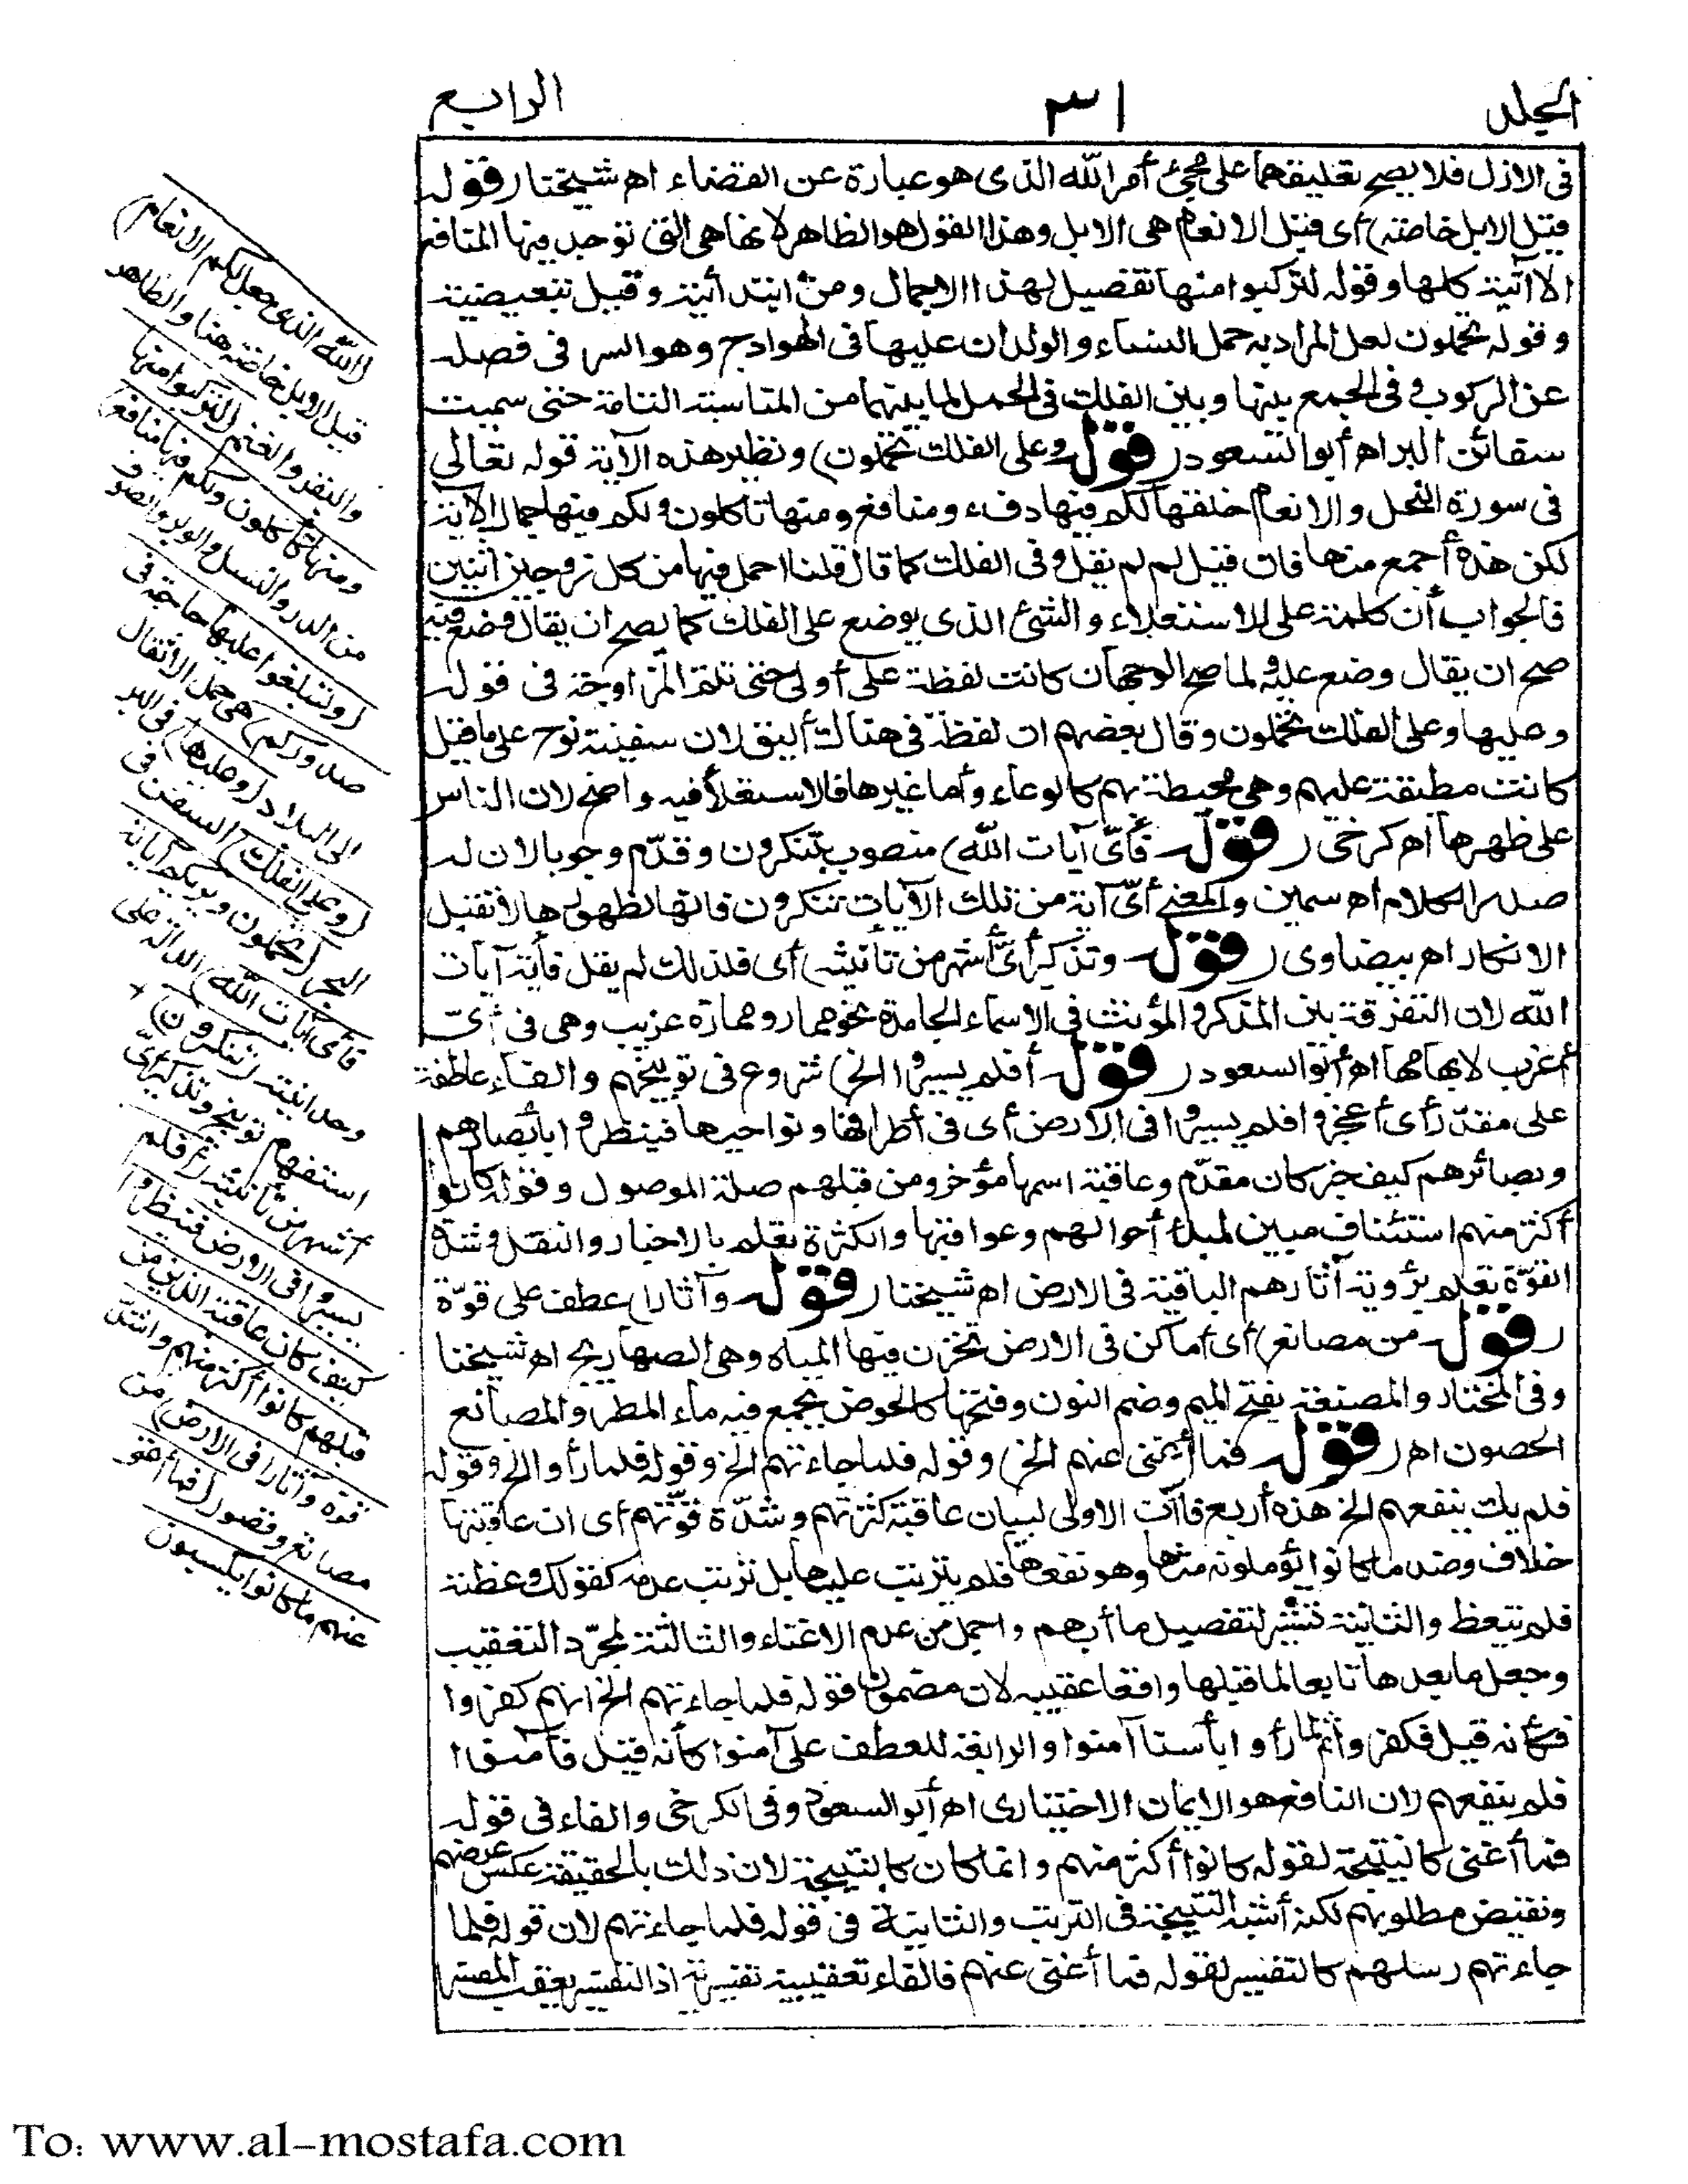 الجلد ٣١ الرابع
فى الازل فلا يصح تعليقهما على مجئ أمر الله الذى هو عبارة عن القضاء اه شيخنا (قوله
قيل الابل خاصة) أى قيل الانعام هى الابل وهذا القول هو الظاهر لانها هى التى توجد فيها المنافع
الاآتية كلها وقوله لتركبوا منها تفصيل لهذا الاجمال ومن ابتدائية وقيل تبعيضية
وقوله تحملون لعل المراد به حمل النساء والولدان عليها فى الهوادج وهو السر فى فصله
عن الركوب وفى الجمع بينها وبين الفلك فى الحمل لما بينهما من المناسبة التامة حتى سميت
سفائن البر اه أبو السعود (قوله وعلى الفلك تحملون) ونظير هذه الآية قوله تعالى
فى سورة النحل والانعام خلقها لكم فيها دفء ومنافع ومنها تأكلون ولكم فيها جمال الآية
لكن هذه أجمع منها فان قيل لم لم يقل وفى الفلك كما قال قلنا احمل فيها من كل زوجين اثنين
فالجواب أن كلمة على للاستعلاء والشئ الذى يوضع على الفلك كما يصح ان يقال وضع فيه
صح ان يقال وضع عليه ولما صح الوجهان كانت لفظة على أولى حتى تتم المزاوجة فى قوله
وعليها وعلى الفلك تحملون وقال بعضهم ان لفظة فى هناك أليق لان سفينة نوح على ما قيل
كانت مطبقة عليهم وهى محيطة بهم كالوعاء وأما غيرها فالاستعلاء فيه واضح لان الناس
على ظهرها اه كرخى (قوله فأىّ آيات الله) منصوب بتنكرون وقدّم وجوبا لان له
صدر الكلام اه سمين والمعنى أىّ آية من تلك الآيات تنكرون فانها لظهورها لا تقبل
الانكار اه بيضاوى (قوله وتذكير أىّ أشهر من تأنيثه) أى فلذلك لم يقل فأية آيات
الله لان التفرقة بين المذكر والمؤنث فى الاسماء الجامدة نحو حمار وحمارة غريب وهى فى أىّ
أغرب لابهامها اه أبو السعود (قوله أفلم يسيروا الخ) شروع فى توبيخهم والفاء عاطفة
على مقدّر أى أعجزوا فلم يسيروا فى الارض أى فى أطرافها ونواحيها فينظروا بأبصارهم
وبصائرهم كيف خبر كان مقدّم وعاقبة اسمها مؤخر ومن قبلهم صلة الموصول وقوله كانوا
أكثر منهم استئناف مبين لمبدأ أحوالهم وعواقبها والكثرة تعلم بالاخبار والنقل وشدّة
القوّة تعلم برؤية آثارهم الباقية فى الارض اه شيخنا (قوله وآثارا) عطف على قوّة
(قوله من مصانع) أى أماكن فى الارض تخزن فيها المياه وهى الصهاريج اه شيخنا
وفى المختار والمصنعة بفتح الميم وضم النون وفتحها كالحوض يجمع فيه ماء المطر والمصانع
الحصون اه (قوله فما أغنى عنهم الخ) وقوله فلما جاءتهم الخ وقوله فلما رأوا الخ وقوله
فلم يك ينفعهم الخ هذه أربع فاآت الاولى لبيان عاقبة كثرتهم وشدّة قوّتهم أى ان عاقبتها
خلاف وضد ما كانوا يؤملونه منها وهو نفعها فلم يترتب عليها بل ترتب عدمه كقولك وعظته
فلم يتعظ والثانية تشير لتفصيل ما أبهم وأجمل من عدم الاغناء والثالثة لمجرّد التعقيب
وجعل ما بعدها تابعا لما قبلها واقعا عقيبه لان مضمون قوله فلما جاءتهم الخ انهم كفروا
فكأنه قيل فكفروا ثم لما رأوا بأسنا آمنوا والرابعة للعطف على آمنوا كأنه قيل فآمنوا
فلم ينفعهم لان النافع هو الايمان الاختيارى اه أبو السعود وفى الكرخى والفاء فى قوله
فما أغنى كالنتيجة لقوله كانوا أكثر منهم وانما كان كالنتيجة لان ذلك بالحقيقة عكس غرضهم
ونقيض مطلوبهم لكنه أشبه النتيجة فى الترتب والثانية فى قوله فلما جاءتهم لان قوله فلما
جاءتهم رسلهم كالتفسير لقوله فما أغنى عنهم فالفاء تعقيبية تفسيرية اذ التفسير يعقب المفسر
(الله الذى جعل لكم الانعام)
قيل الابل خاصة هنا والظاهر
والبقر والغنم (لتركبوا منها
ومنها تأكلون ولكم فيها منافع)
من الدر والنسل والوبر والصوف
(ولتبلغوا عليها حاجة فى
صدوركم) هى حمل الاثقال
الى البلاد (وعليها) فى البر
(وعلى الفلك) السفن فى
البحر (تحملون ويريكم آياته
فأى آيات الله) الدالة على
وحدانيته (تنكرون)
استفهام توبيخ وتذكير أىّ
أشهر من تأنيثه (أفلم
يسيروا فى الارض فينظروا
كيف كان عاقبة الذين من
قبلهم كانوا أكثر منهم وأشدّ
قوّة وآثارا فى الارض) من
مصانع وقصور (فما أغنى
عنهم ما كانوا يكسبون
To: www.al-mostafa.com